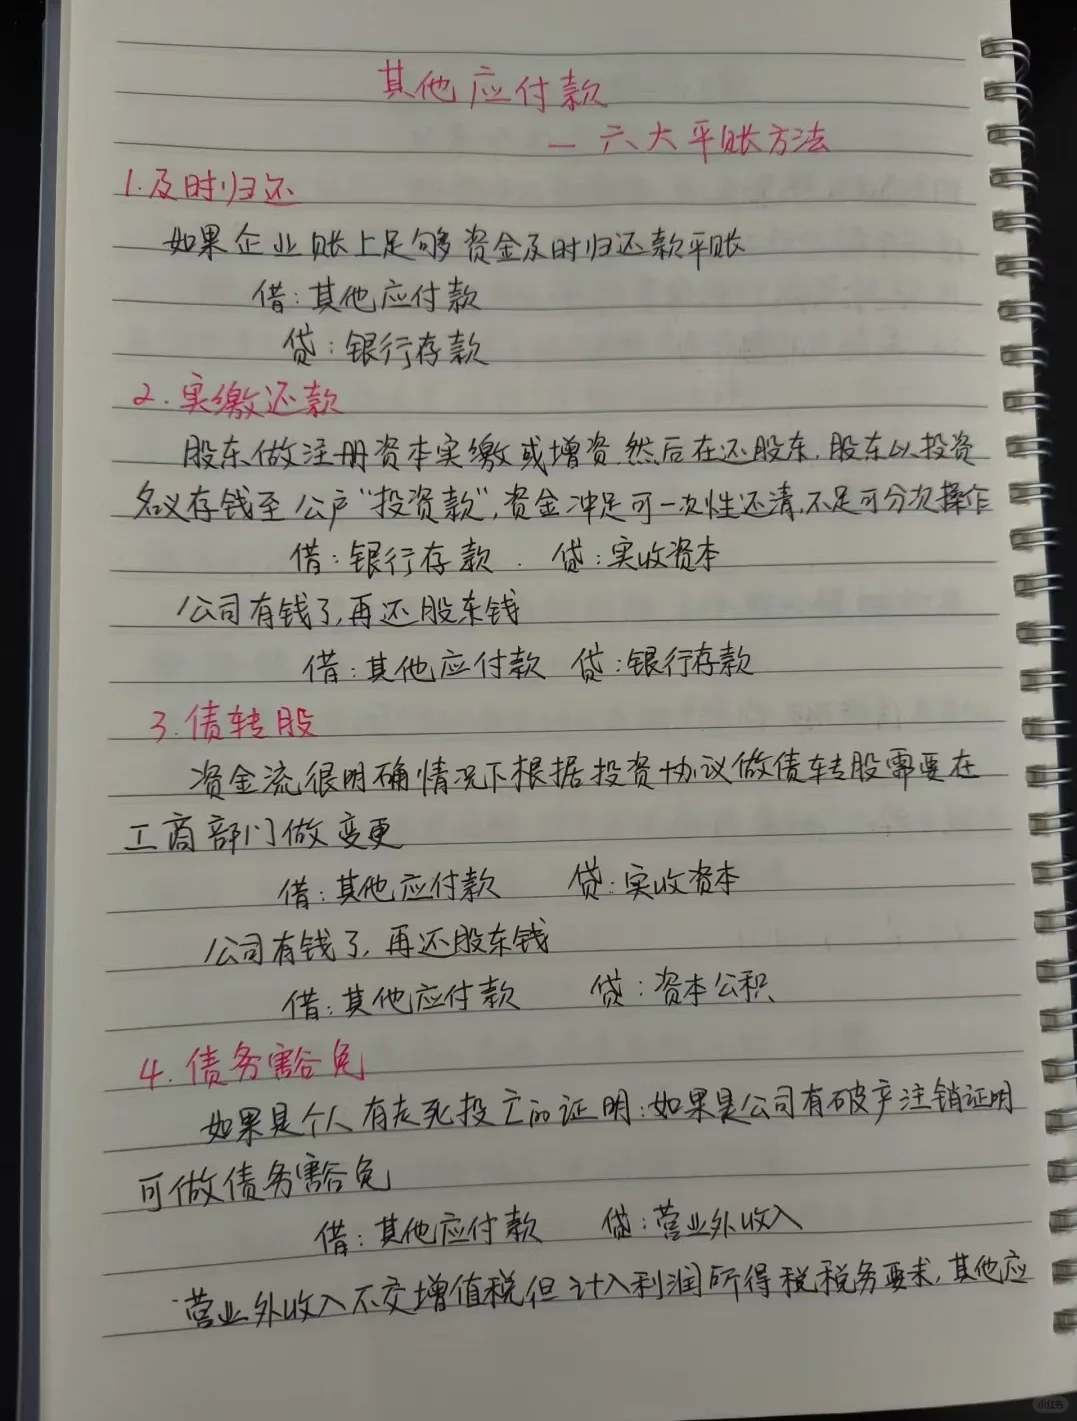 其他应付款
— 六大平账方法
1.及时归还
如果企业账上足够资金及时归还款平账
借:其他应付款
贷:银行存款
2.实缴还款
股东做注册资本实缴或增资,然后在还股东,股东以投资
名义存钱至公户“投资款”,资金冲足可一次性还清,不足可分次操作
借:银行存款. 贷:实收资本
公司有钱了,再还股东钱
借:其他应付款 贷:银行存款
3.债转股
资金流很明确情况下根据投资协议做债转股需要在
工商部门做变更
借:其他应付款 贷:实收资本
公司有钱了,再还股东钱
借:其他应付款 贷:资本公积
4.债务豁免
如果是个人有走死投亡的证明;如果是公司有破产注销证明
可做债务豁免
借:其他应付款 贷:营业外收入
营业外收入不交增值税但计入利润所得税税务要求,其他应
小红书